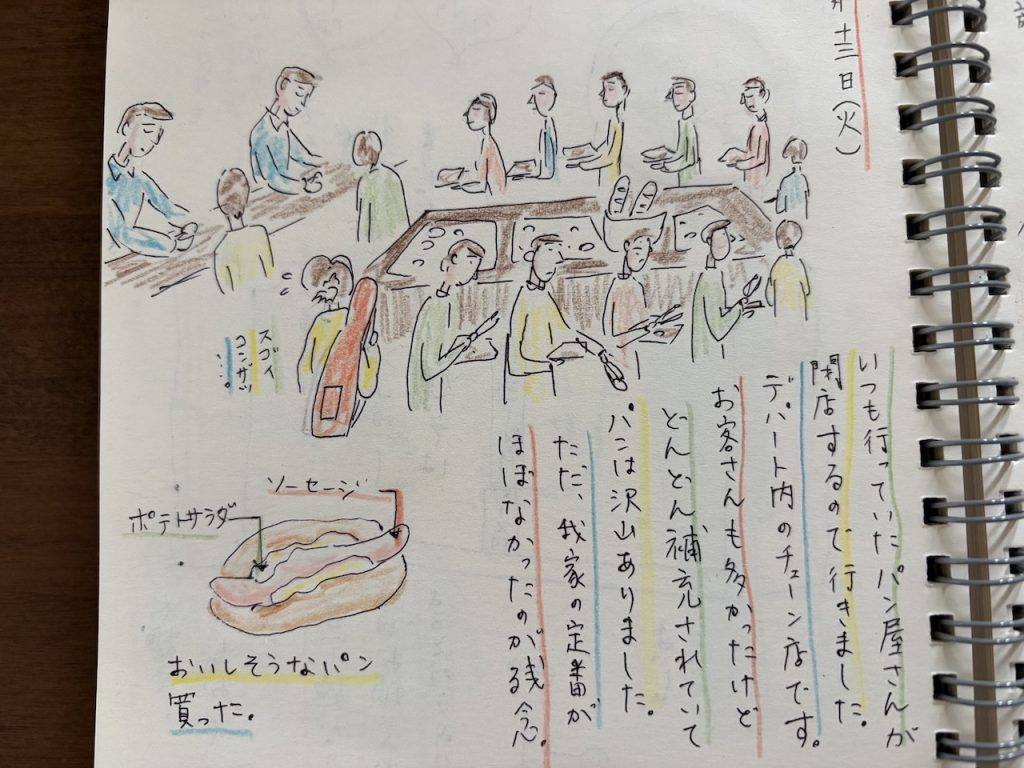 十三日(火)
いつも行っていたパン屋さんが
閉店するので行きました。
デパート内のチェーン店です。
お客さんも多かったけど
どんどん補充されていて
パンは沢山ありました。
ただ、我家の定番が
ほぼなかったのが残念。
スゴイ
コンザツ
…。
ソーセージ
ポテトサラダ
おいしそうなパン
買った。